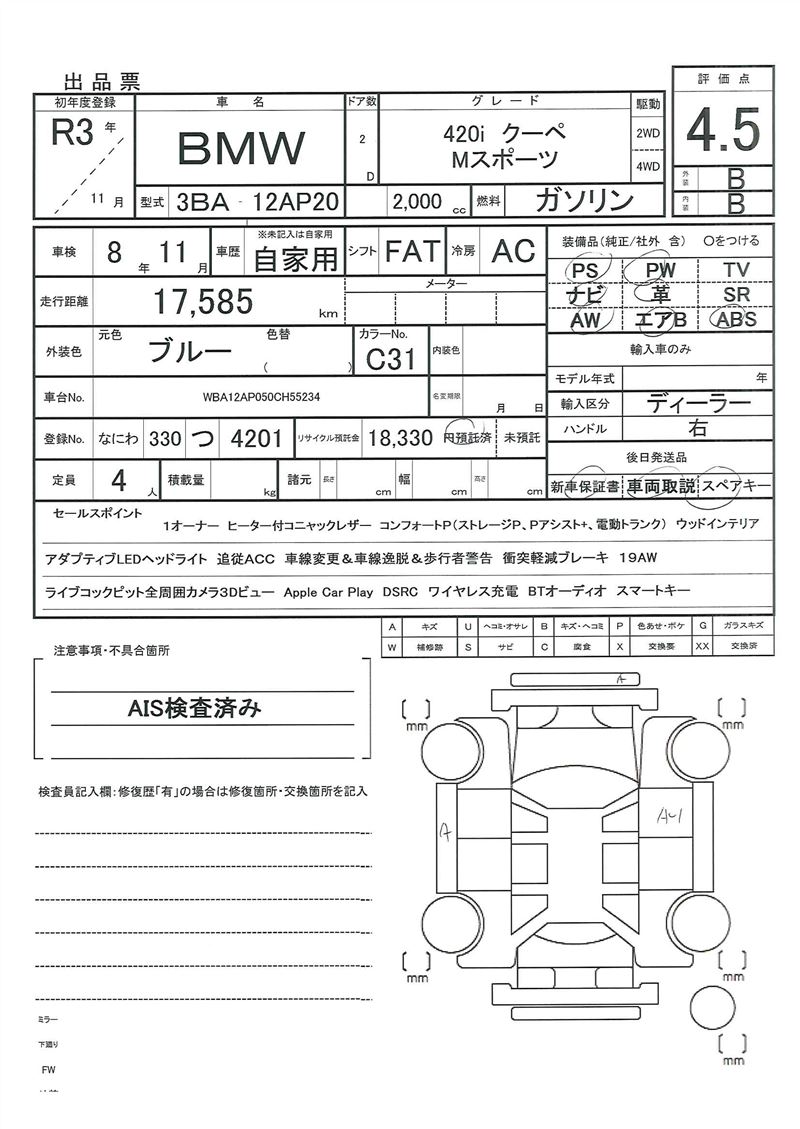 出品票
初年度登録 車名 ドア数 グレード 駆動 評価点
R3 年 BMW 2 D 420i クーペ 2WD 4.5
Mスポーツ 4WD
11 月 型式 3BA - 12AP20 2,000 cc 燃料 ガソリン
外装 B
内装 B
車検 8 年 11 月 車歴 ※未記入は自家用 自家用 シフト FAT 冷房 AC
走行距離 17,585 km メーター
外装色 元色 ブルー 色替 ( ) カラーNo. C31 内装色
車台No. WBA12AP050CH55234 名変期限 月 日
登録No. なにわ 330 つ 4201 リサイクル預託金 18,330 円預託済 未預託
定員 4 人 積載量 kg 諸元 長さ cm 幅 cm 高さ cm
装備品(純正/社外 含) 〇をつける
PS PW TV
ナビ 革 SR
AW エアB ABS
輸入車のみ
モデル年式 年
輸入区分 ディーラー
ハンドル 右
後日発送品
新車保証書 車両取説 スペアキー
セールスポイント
1オーナー ヒーター付コニャックレザー コンフォートP(ストレージP、Pアシスト+、電動トランク) ウッドインテリア
アダプティブLEDヘッドライト 追従ACC 車線変更&車線逸脱&歩行者警告 衝突軽減ブレーキ 19AW
ライブコックピット全周囲カメラ3Dビュー Apple Car Play DSRC ワイヤレス充電 BTオーディオ スマートキー
A キズ U ヘコミ・オサレ B キズ・ヘコミ P 色あせ・ボケ G ガラスキズ
W 補修跡 S サビ C 腐食 X 交換要 XX 交換済
注意事項・不具合箇所
AIS検査済み
検査員記入欄:修復歴「有」の場合は修復箇所・交換箇所を記入
A
[ ] mm [ ] mm
A A-1
[ ] mm [ ] mm
[ ] mm
ミラー
下廻り
FW